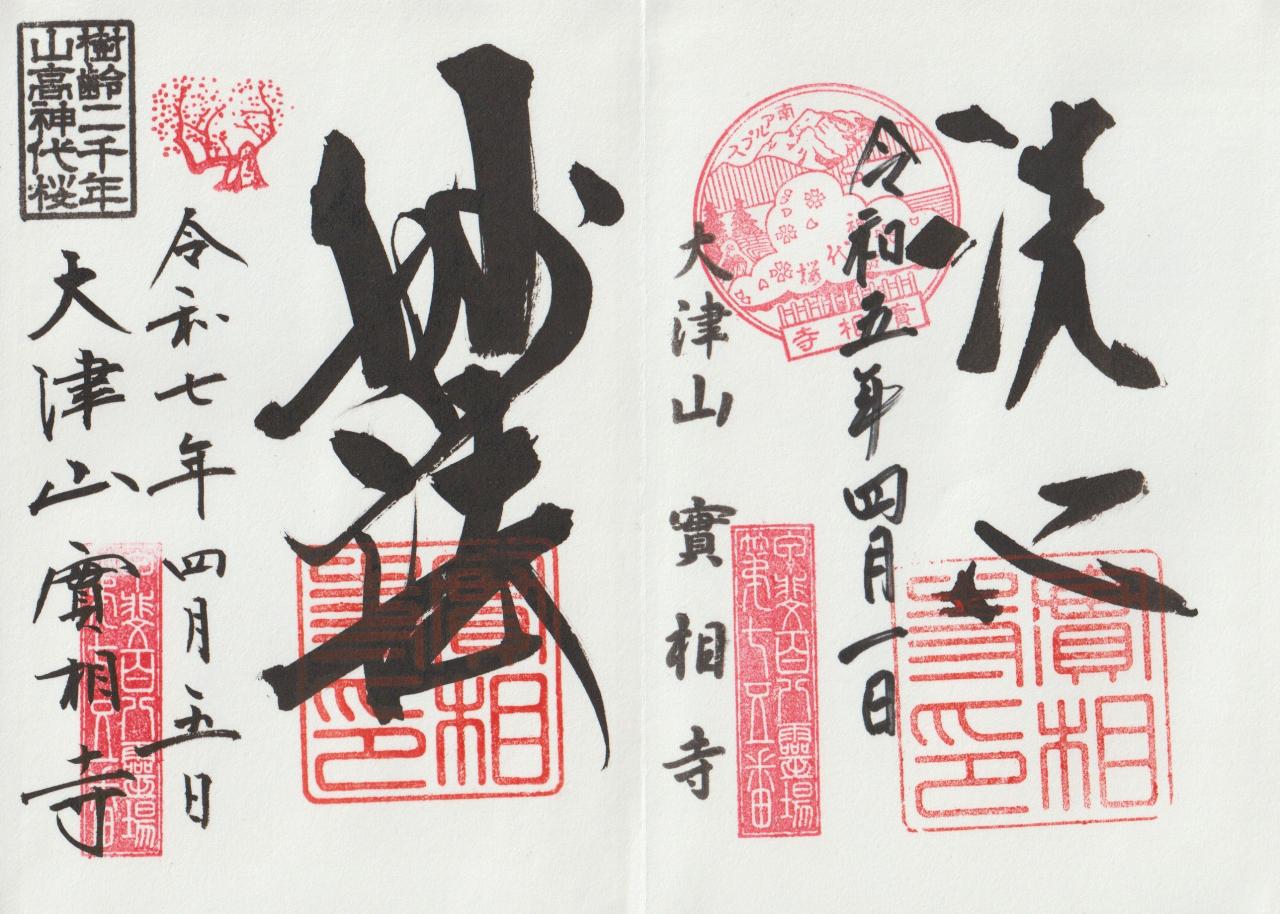 淡心
令和五年四月一日
大津山 實相寺
南アルプス
神代桜
實相寺
實相寺印
甲斐百八靈場
第七五番
妙法
令和七年四月五日
大津山 實相寺
樹齢二千年
山高神代桜
實相寺印
甲斐百八靈場